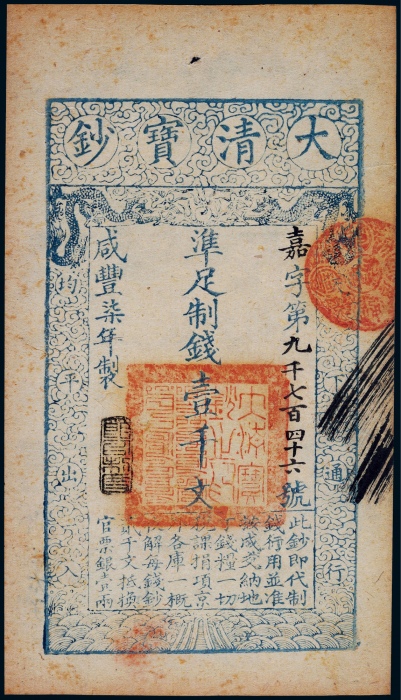 大清寶鈔
天下通行
嘉字第九千七百四十六號
準足制錢壹千文
咸豐柒年製
均平出入
此鈔即代制
錢行用並准
按成交納地
丁錢糧一切
稅課捐項京
外各庫一概
收解每錢鈔
貳千文抵換
官票銀壹兩